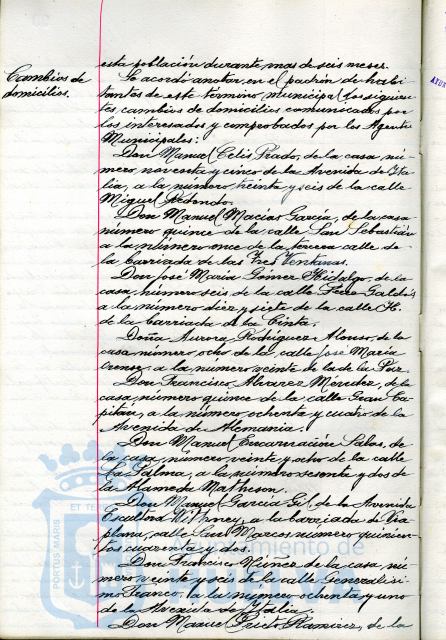 esta población durante mas de seis meses.
Cambios de
domicilios.
Se acordó anotar en el padrón de habi-
tantes de este término municipal los siguien-
tes cambios de domicilios comunicados por
los interesados y comprobados por los Agentes
Municipales:
Don Manuel Celis Prado, de la casa nú-
mero noventa y cinco de la Avenida de Ita-
lia, a la número treinta y seis de la calle
Miguel Redondo.
Don Manuel Macías García, de la casa
número quince de la calle San Sebastián
a la número once de la tercera calle de
la barriada de las Tres Ventanas.
Don José María Gómez Hidalgo, de la
casa número seis de la calle Pérez Galdós
a la número diez y siete de la calle H.
de la barriada de la Cinta.
Doña Aurora Rodríguez Alonso, de la
casa número ocho de la calle José María
a la número veinte de la de la Paz.
Don Francisco Alvarez Méndez, de la
casa número quince de la calle Gran Ca-
pitán, a la número ochenta y cuatro de la
Avenida de Alemania.
Don Manuel Encarnación, de
la casa número veinte y ocho de la calle
La Palma, a la número sesenta y dos de
la Alameda Mathison.
Don Manuel García Gil, de la Avenida
Escultora Withney, a la barriada de Via-
plana, calle San Marcos número quinien-
tos cuarenta y dos.
Don Francisco Núnez de la casa nú-
mero veinte y seis de la calle Generalísi-
mo Franco, a la número ochenta y uno
de la Avenida de Italia.
Don Manuel Prieto Ramírez, de la
PORTUS MARIS
ET TE
Ayuntamiento de